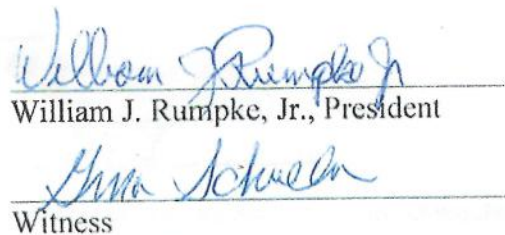 William J Rumpke Jr
William J. Rumpke, Jr., President
Witness